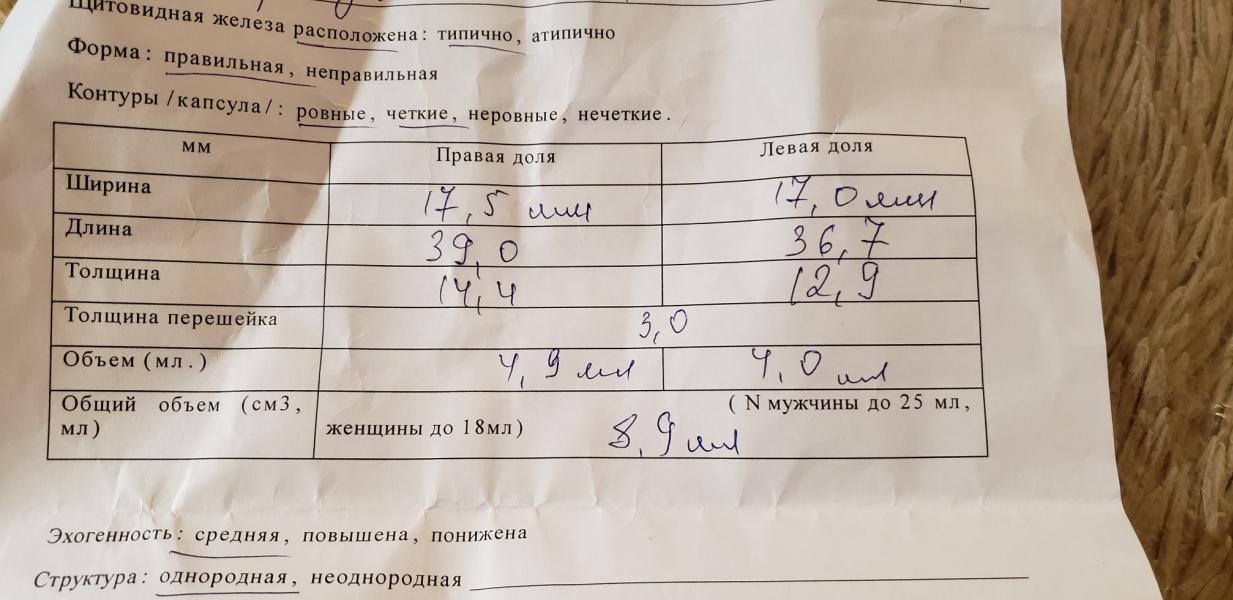 Щитовидная железа расположена: типично, атипично
Форма: правильная, неправильная
Контуры /капсула/: ровные, четкие, неровные, нечеткие.
мм Правая доля Левая доля
Ширина 17,5 мм 17,0 мм
Длина 39,0 36,7
Толщина 14,4 12,9
Толщина перешейка 3,0
Объем (мл.) 4,9 мл 4,0 мл
Общий объем (см3, ( N мужчины до 25 мл,
мл) женщины до 18мл) 8,9 мл
Эхогенность: средняя, повышена, понижена
Структура: однородная, неоднородная